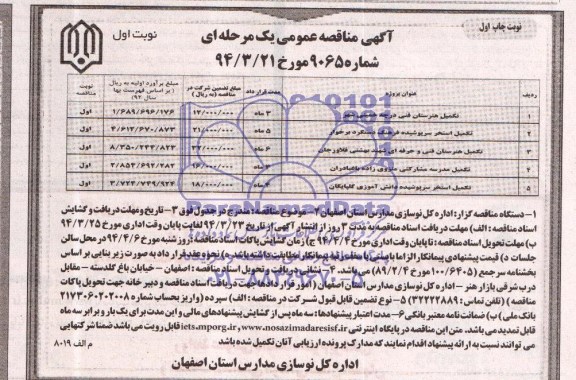 نوبت چاپ اول
آگهی مناقصه عمومی یک مرحله ای
نوبت اول
شماره ۹۰۶۵ مورخ ۹۴/۳/۲۱
ردیف عنوان پروژه مدت قرار داد مبلغ تضمین شرکت در مناقصه (به ریال) مبلغ برآورد اولیه به ریال (بر اساس فهرست بها سال ۹۴) نوبت مناقصه
۱ تکمیل هنرستان فنی ۳ ماه ۱۲/۰۰۰/۰۰۰ ۱/۶۸۹/۶۹۶/۱۷۶ اول
۲ تکمیل استخر سرپوشیده فرهنگ دستگرد برخوار ۵ ماه ۲۱/۰۰۰/۰۰۰ ۴/۶۱۲/۶۷۰/۸۷۳ اول
۳ تکمیل هنرستان فنی و حرفه ای شهید بهشتی فلاورجان ۶ ماه ۸/۳۵۰/۲۳۳/۸۲۳ اول
۴ تکمیل مدرسه مشارکتی منزوی زاده باغبادران ۱۶/۰۰۰/۰۰۰ ۲/۸۵۳/۶۹۲/۲۸۲ اول
۵ تکمیل استخر سرپوشیده دانش آموزی گلپایگان ۱۸/۰۰۰/۰۰۰ ۳/۷۲۴/۷۴۹/۹۲۴ اول
ParsNamadData
۱- دستگاه مناقصه گزار: اداره کل نوسازی مدارس استان اصفهان ۲- موضوع مناقصه: مندرج در جدول فوق ۳- تاریخ و مهلت دریافت و گشایش
اسناد مناقصه: الف) مهلت دریافت اسناد مناقصه به مدت ۳ روز از انتشار آگهی از تاریخ ۹۴/۳/۲۳ لغایت پایان وقت اداری مورخ ۹۴/۳/۲۵
ب) مهلت تحویل اسناد مناقصه: تا پایان وقت اداری مورخ ۹۴/۴/۴ ج) زمان گشایش پاکات اسناد مناقصه: روز شنبه مورخ ۹۴/۴/۶ در محل سالن
جلسات د) قیمت پیشنهادی پیمانکار الزاما باید با مبلغ پایه پیمانکار مطابقت داشته باشد ه) نحوه عقد قرار داد به صورت زیربنایی بر اساس
بخشنامه سرجمع (۱۰۰/۶۴۰۵ - ۸۹/۲/۴) می باشد. ۴- نشانی دریافت و تحویل اسناد مناقصه: اصفهان - خیابان باغ گلدسته - مقابل
درب شرقی بازار هنر - اداره کل نوسازی مدارس استان اصفهان (امور قراردادها جهت دریافت اسناد مناقصه و دبیرخانه جهت تحویل پاکات
مناقصه) (تلفن تماس: ۳۲۲۲۲۸۸۹) ۵- نوع تضمین قابل قبول شرکت در مناقصه: الف) سپرده (واریز بحساب شماره ۲۱۷۳۰۶۰۲۰۲۰۰۸
بانک ملی) ب) ضمانت نامه معتبر بانکی ۶- مدت اعتبار پیشنهادها: سه ماه پس از گشایش پیشنهادهای مالی و این مدت برای یک بار و برابر سه ماه
قابل تمدید می باشد. متن این مناقصه در پایگاه اینترنتی www.nosazimadaresisf.ir و iets.mporg.ir قابل رویت می باشد ضمنا شرکتهایی
می توانند نسبت به ارائه پیشنهاد اقدام نمایند که مدارک پرونده ارزیابی آنان تکمیل شده باشد
م الف ۸۰۱۹
اداره کل نوسازی مدارس استان اصفهان